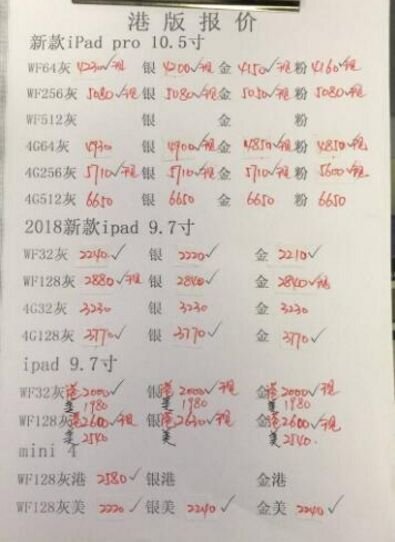 港版报价
新款iPad pro 10.5寸
WF64灰 4230√现 银 4200√现 金 4150√现 粉 4160√现
WF256灰 5080√现 银 5080√现 金 5050√现 粉 5080√现
WF512灰 银 金 粉
4G64灰 4930 银 4900√现 金 4850√现 粉 4850√现
4G256灰 5710√现 银 5710√现 金 5710√现 粉 5600√现
4G512灰 6650 银 6650 金 6650 粉 6650
2018新款ipad 9.7寸
WF32灰 2240√ 银 2220√ 金 2210√
WF128灰 2880√现 银 2840√ 金 2840√现
4G32灰 3230 银 3230 金 3230
4G128灰 3770√ 银 3770√ 金 3770√
ipad 9.7寸
WF32灰 港2000√ 银 港2000√现 金 港2000√现
美1980 美1980 美1980
WF128灰 港2600√现 银 港2630√现 金 港2600√现
美2540 美 美2540
mini 4
WF128灰港 2580√ 银港 金港
WF128灰美 2220√ 银美 2240√ 金美 2240√